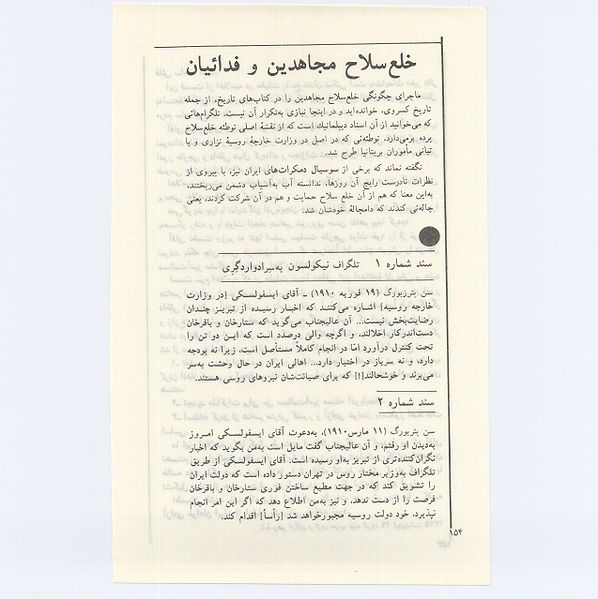 خلع‌سلاح مجاهدین و فدائیان
ماجرای چگونگی خلع‌سلاح مجاهدین را در کتاب‌های تاریخ، از جمله
تاریخ کسروی، خوانده‌اید و در اینجا نیازی به‌تکرار آن نیست. تلگرام‌هائی
که می‌خوانید از آن اسناد دیپلماتیک است که از نقشهٔ اصلی توطئه خلع‌سلاح
پرده برمی‌دارد. توطئه‌ئی که در اصل در وزارت خارجهٔ روسیهٔ تزاری و با
تبانی مأموران بریتانیا طرح شد.
نگفته نماند که برخی از سوسیال دمکرات‌های ایران نیز، با پیروی از
نظرات نادرست رایج آن روزها، ندانسته آب به‌آسیاب دشمن می‌ریختند،
به‌این معنا که هم از آن خلع سلاح حمایت و هم در آن شرکت کردند، یعنی
چاله‌ئی کندند که دامچالهٔ خودشان شد.
سند شماره ۱ تلگراف نیکولسون به‌سرادواردگری
سن پترزبورگ (۱۹ فوریه ۱۹۱۰) ــ آقای ایسفولسکی [در وزارت
خارجه روسیه] اشاره می‌کند که اخبار رسیده از تبریز چندان
رضایت‌بخش نیست... آن عالیجناب می‌گوید که ستارخان و باقرخان
دست‌اندرکار اخلالند، و اگرچه والی درصدد است که این دو تن را
تحت کنترل درآورد امّا در انجام کاملاً مستأصل است، زیرا نه بودجه
دارد، و نه سرباز در اختیار دارد... اهالی ایران در حال وحشت به‌سر
می‌برند و خوشحالند[!] که برای صیانت‌شان نیروهای روسی هستند.
سند شماره ۲
سن پتربورگ (۱۱ مارس ۱۹۱۰)، به‌دعوت آقای ایسفولسکی امروز
به‌دیدن او رفتم، و آن عالیجناب گفت مایل است به‌من بگوید که اخبار
نگران‌کننده‌تری از تبریز به‌او رسیده است. آقای ایسفولسکی از طریق
تلگراف به‌وزیر مختار روس در تهران دستور داده است که دولت ایران
را تشویق کند که در جهت مطیع ساختن فوری ستارخان و باقرخان
فرصت را از دست ندهد، و نیز به‌من اطلاع دهد که اگر این امر انجام
نپذیرد، خود دولت روسیه مجبورخواهد شد [رأساً] اقدام کند.
۱۵۴